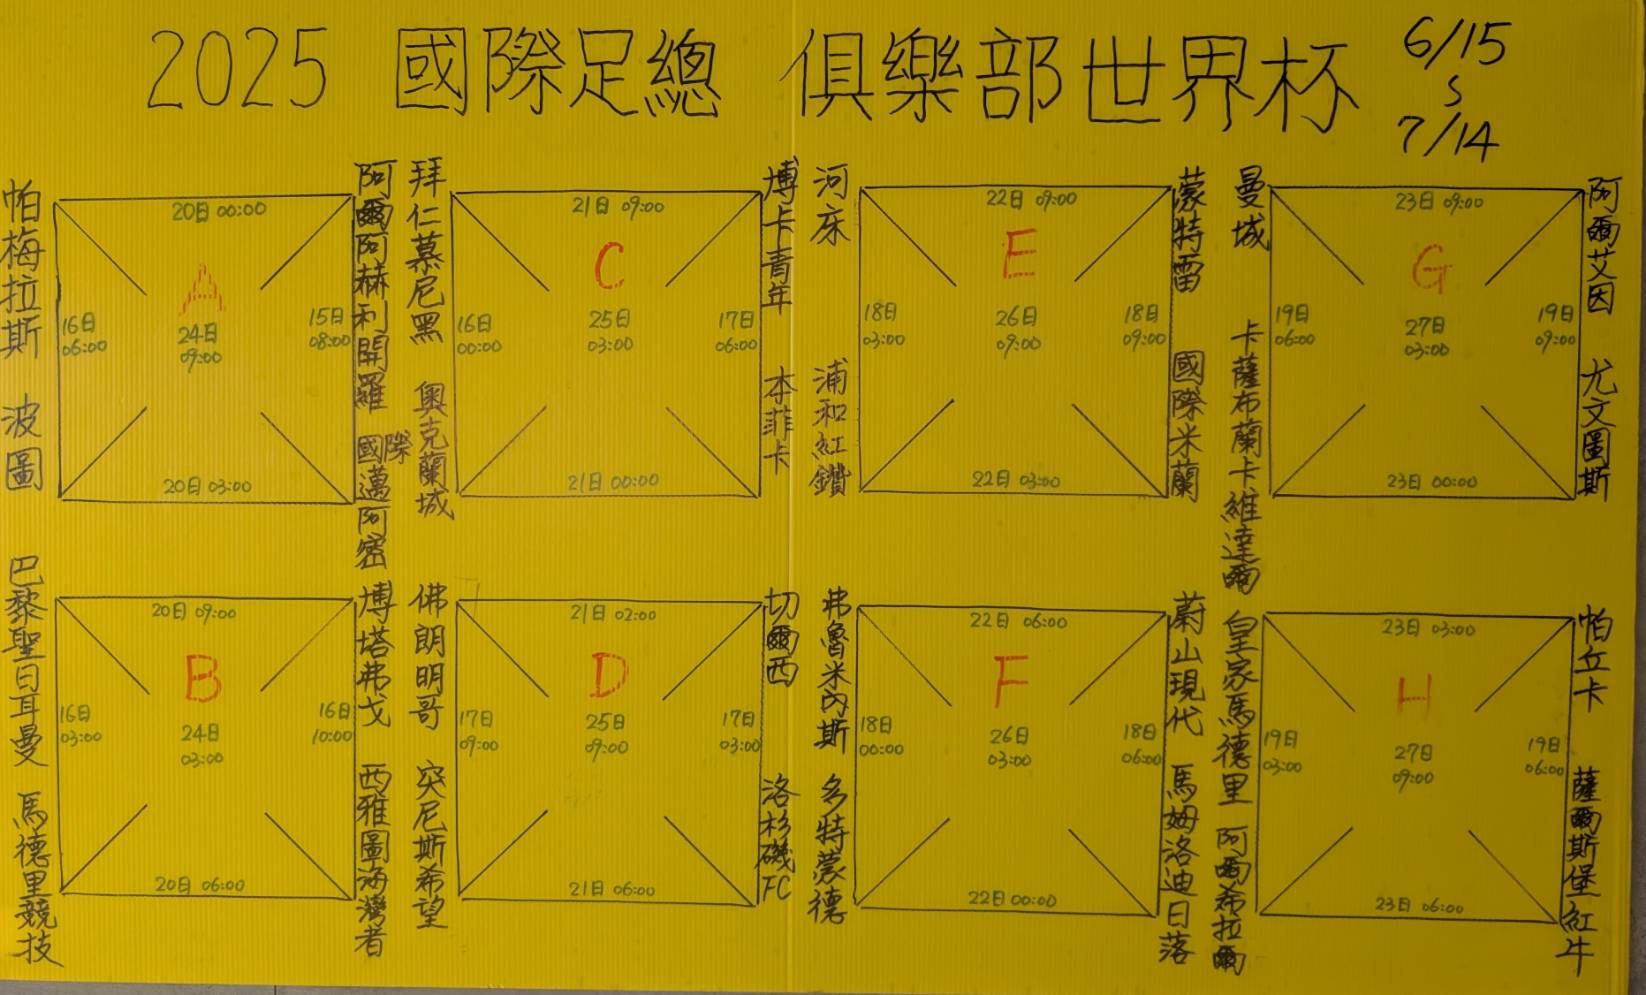 2025 國際足總 俱樂部世界杯
6/15
~
7/14
帕梅拉斯
波圖
阿爾阿赫利開羅
國際邁阿密
20日 00:00
A
16日
06:00
24日
09:00
15日
08:00
20日 03:00
拜仁慕尼黑
奧克蘭城
博卡青年
本菲卡
21日 09:00
C
16日
00:00
25日
03:00
17日
06:00
21日 00:00
河床
浦和紅鑽
蒙特雷
國際米蘭
22日 09:00
E
18日
03:00
26日
09:00
18日
09:00
22日 03:00
曼城
卡薩布蘭卡維達爾
阿爾艾因
尤文圖斯
23日 09:00
G
19日
06:00
27日
03:00
19日
09:00
23日 00:00
巴黎聖日耳曼
馬德里競技
博塔弗戈
西雅圖海灣者
20日 09:00
B
16日
03:00
24日
03:00
16日
10:00
20日 06:00
佛朗明哥
突尼斯希望
切爾西
洛杉磯FC
21日 02:00
D
17日
09:00
25日
09:00
17日
03:00
21日 06:00
弗魯米內斯
多特蒙德
蔚山現代
馬姆洛迪日落
22日 06:00
F
18日
00:00
26日
03:00
18日
06:00
22日 00:00
皇家馬德里
阿爾希拉爾
帕丘卡
薩爾斯堡紅牛
23日 03:00
H
19日
03:00
27日
09:00
19日
06:00
23日 06:00